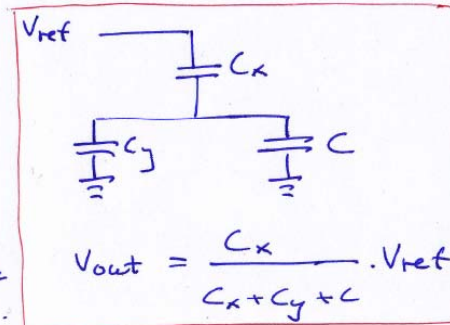 Vref
Cx
Cy
C
Vout = Cx / Cx + Cy + C . Vref